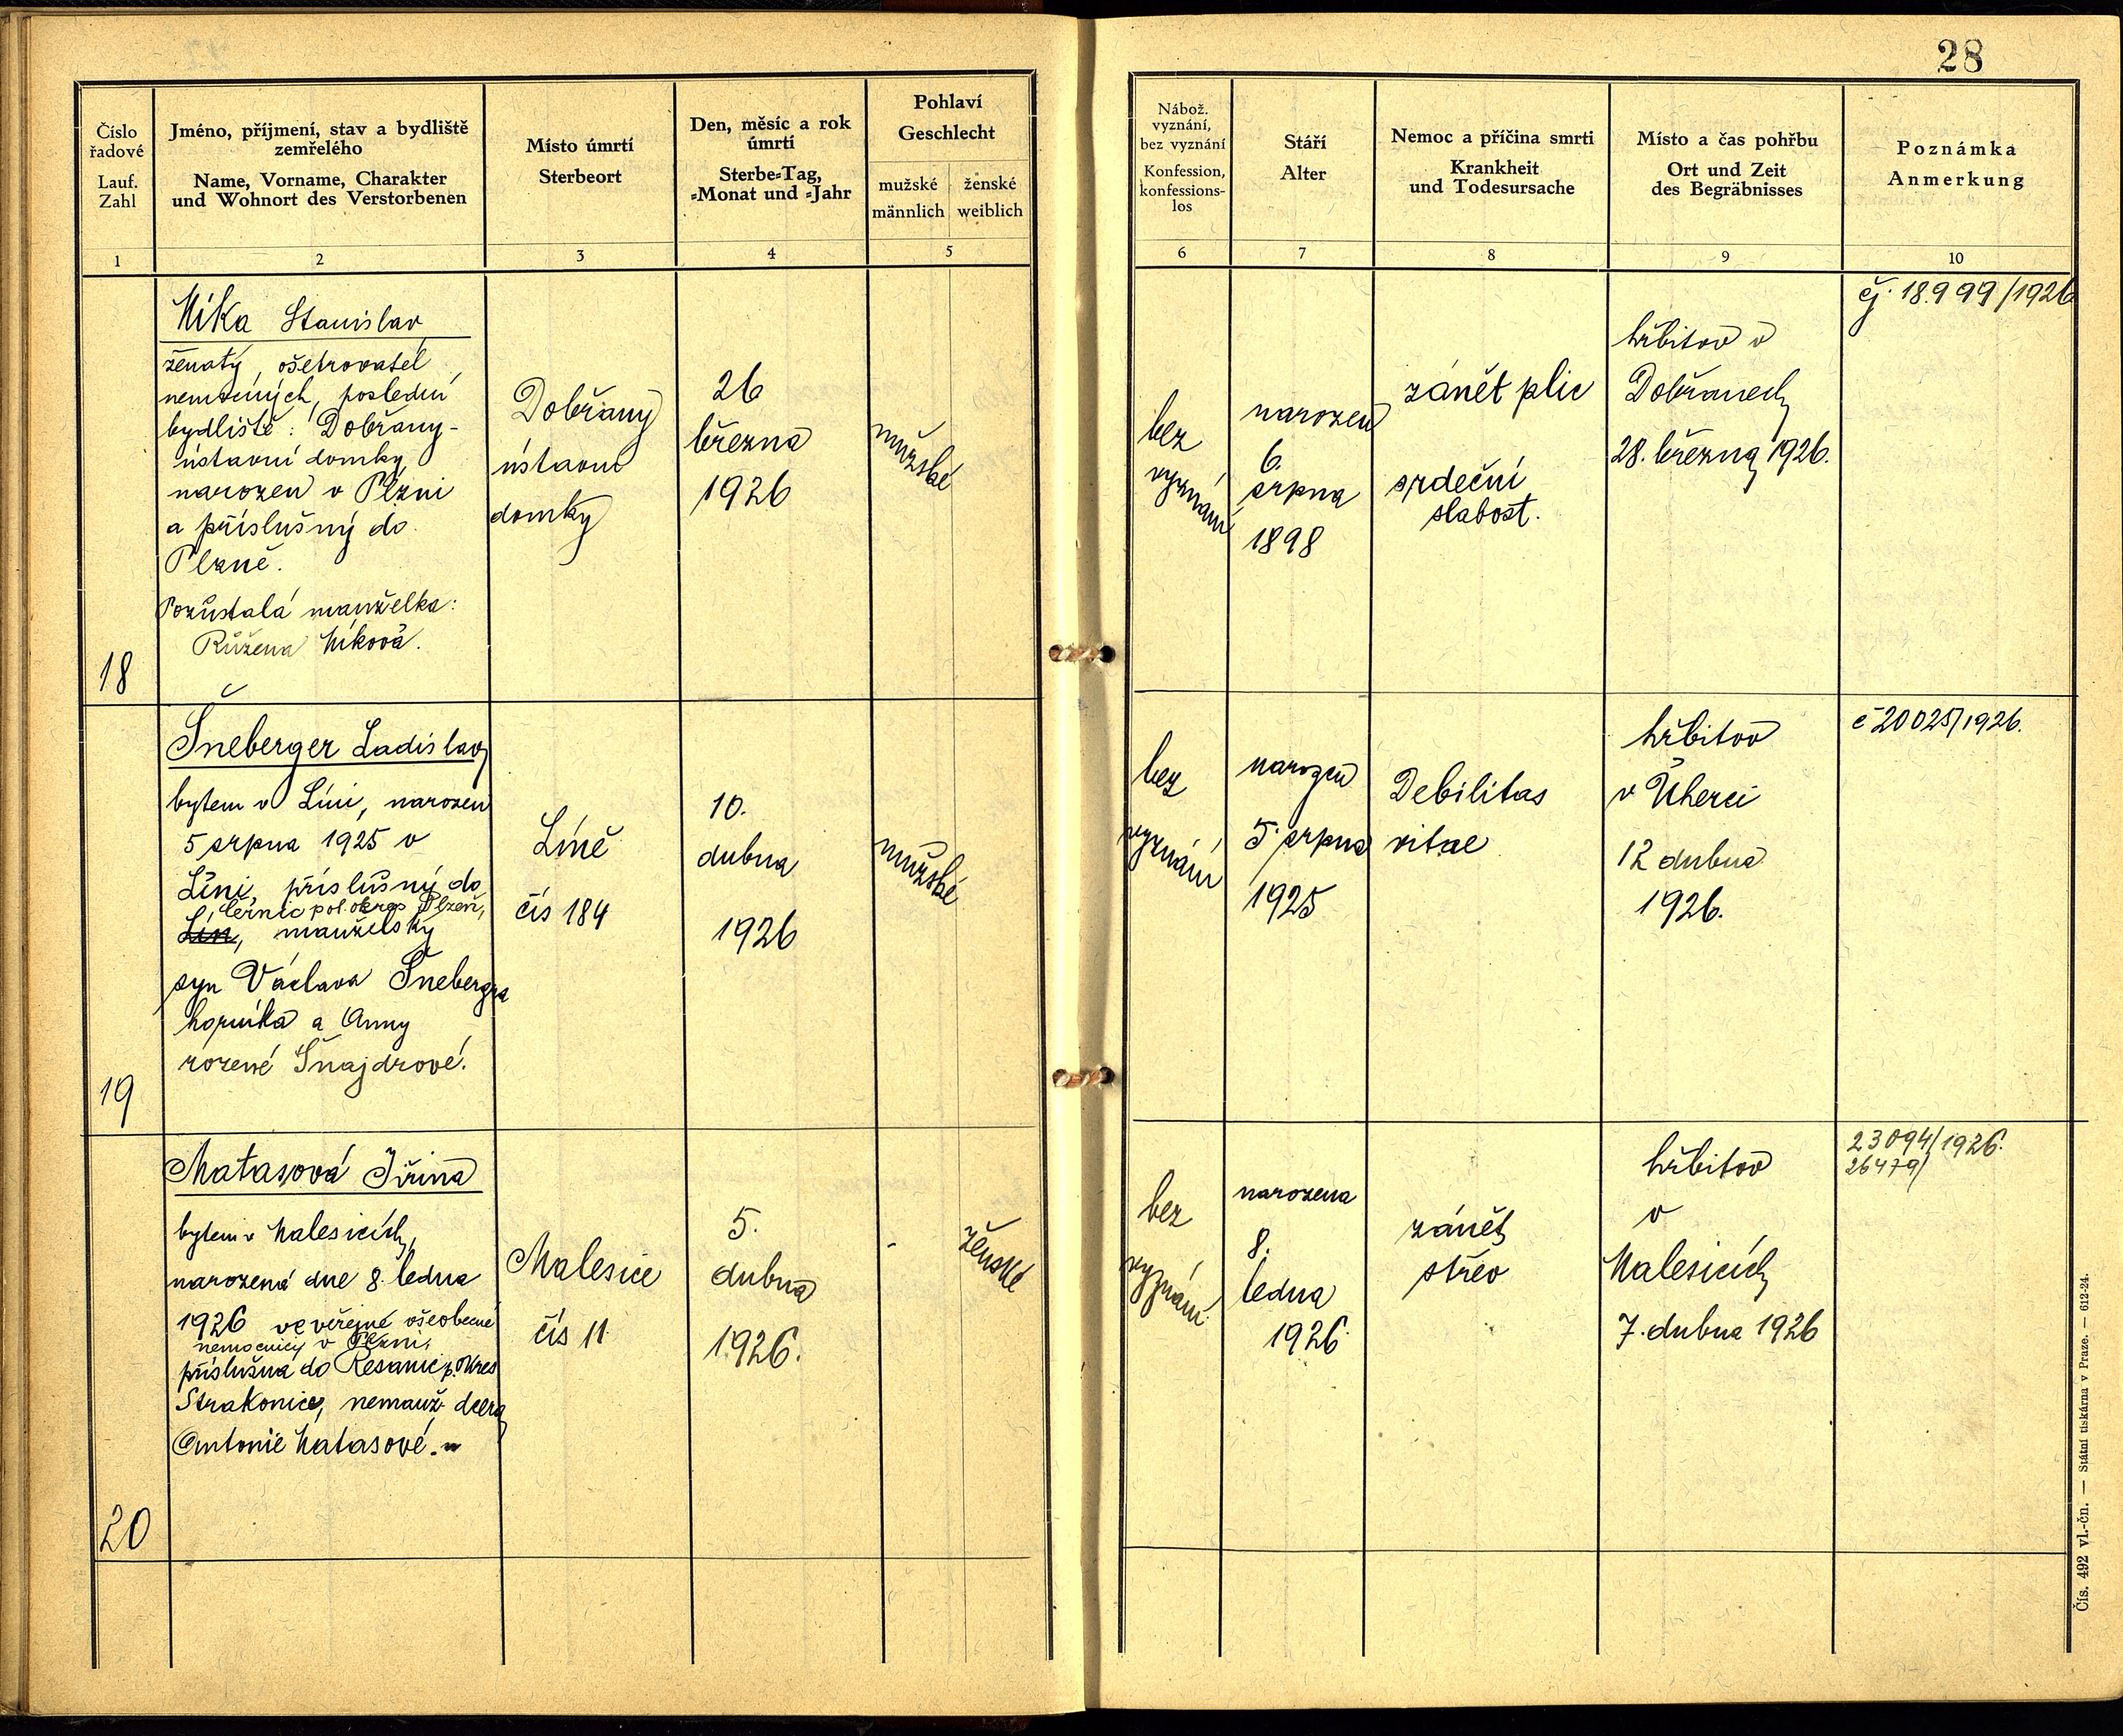 28
Číslo
řadové
Lauf.
Zahl
Jméno, příjmení, stav a bydliště
zemřelého
Name, Vorname, Charakter
und Wohnort des Verstorbenen
Místo úmrtí
Sterbeort
Den, měsíc a rok
úmrtí
Sterbe-Tag,
-Monat und -Jahr
Pohlaví
Geschlecht
mužské
männlich
ženské
weiblich
Nábož.
vyznání,
bez vyznání
Konfession,
konfessions-
los
Stáří
Alter
Nemoc a příčina smrti
Krankheit
und Todesursache
Místo a čas pohřbu
Ort und Zeit
des Begräbnisses
Poznámka
Anmerkung
1
2
3
4
5
6
7
8
9
10
18
Míka Stanislav
ženatý, ošetrovatel
nemocných, poslední
bydliště: Dobřany-
ústavní domky,
narozen v Plzni
a příslušný do
Plzně.
Pozůstalá manželka:
Růžena Míková.
Dobřany
ústavní
domky
26
března
1926
mužské
bez
vyznání
narozen
6.
srpna
1898
zánět plic
srdeční
slabost.
hřbitov v
Dobřanech
28. března 1926.
čj. 18.999/1926
19
Šneberger Ladislav
bytem v Líni, narozen
5 srpna 1925 v
Líni, příslušný do
Černic pol. okres Plzeň,
Lín, manželský
syn Václava Šnebergra
horníka a Anny
rozené Šnajdrové.
Líně
čís 184
10.
dubna
1926
mužské
bez
vyznání
narozen
5. srpna
1925
Debilitas
vitae
hřbitov
v Úherci
12 dubna
1926.
č 20025/1926.
20
Matasová Jiřina
bytem v Malesicích,
narozená dne 8. ledna
1926 ve veřejné všeobecné
nemocnici v Plzni,
příslušná do Řesanic p. okres
Strakonice, nemanž. dcera
Antonie Matasové.
Malesice
čís 11
5.
dubna
1926.
-
ženské
bez
vyznání
narozena
8.
ledna
1926
zánět
střev
hřbitov
v
Malesicích
7. dubna 1926
23094/1926.
26479/
Čís. 492 vl.-čn. — Státní tiskárna v Praze. — 612-24.